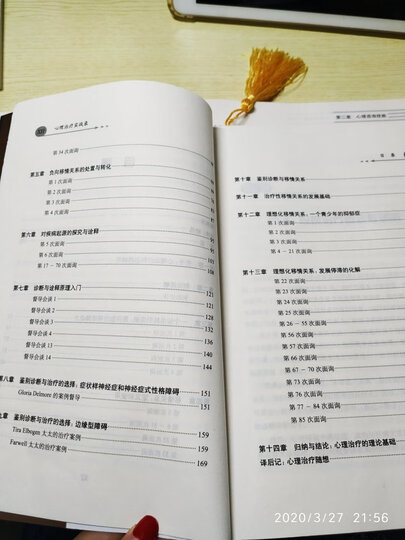 心理治疗实战录
第 34 次面询
第五章 负向移情关系的处置与转化
第 1 次面询
第 2 次面询
第 3 次面询
第 4 次面询
第六章 对候候起源的探究与诠释 95
第 5 次面询 95
第 6 次面询 103
第 17 - 70 次面询 108
第七章 诊断与诠释原理入门 121
督导会谈 1 121
督导会谈 2 127
督导会谈 4 132
督导会谈 13 136
督导会谈 13 140
督导会谈 14 144
第八章 鉴别诊断与治疗的选择:症状样神经症和神经症式性格障碍 151
Gloria Delmore 的案例督导 151
九章 鉴别诊断与治疗的选择:边缘型障碍 159
Tira Elbogen 太太的治疗案例 159
Farwell 太太的治疗案例 169
第二章 心理咨询技能
目 录
第十章 鉴别诊断与移情关系
第十一章 治疗性移情关系的发展基础
第十二章 理想化移情关系:一个青少年的抑郁症
第 1 次面询
第 2 次面询
第 3 次面询
第 4 - 21 次面询
第十三章 理想化移情关系:发展停滞的化解
第 22 次面询
第 23 次面询
第 24 次面询
第 25 次面询
第 26 - 55 次面询
第 56 次面询
第 66 次面询
第 67 次面询
第 67 - 70 次面询
第 73 次面询
第 76 次面询
第 77 - 84 次面询
第 85 次面询
第十四章 归纳与结论:心理治疗的理论基础
译后记:心理治疗随想
2020/3/27 21:56